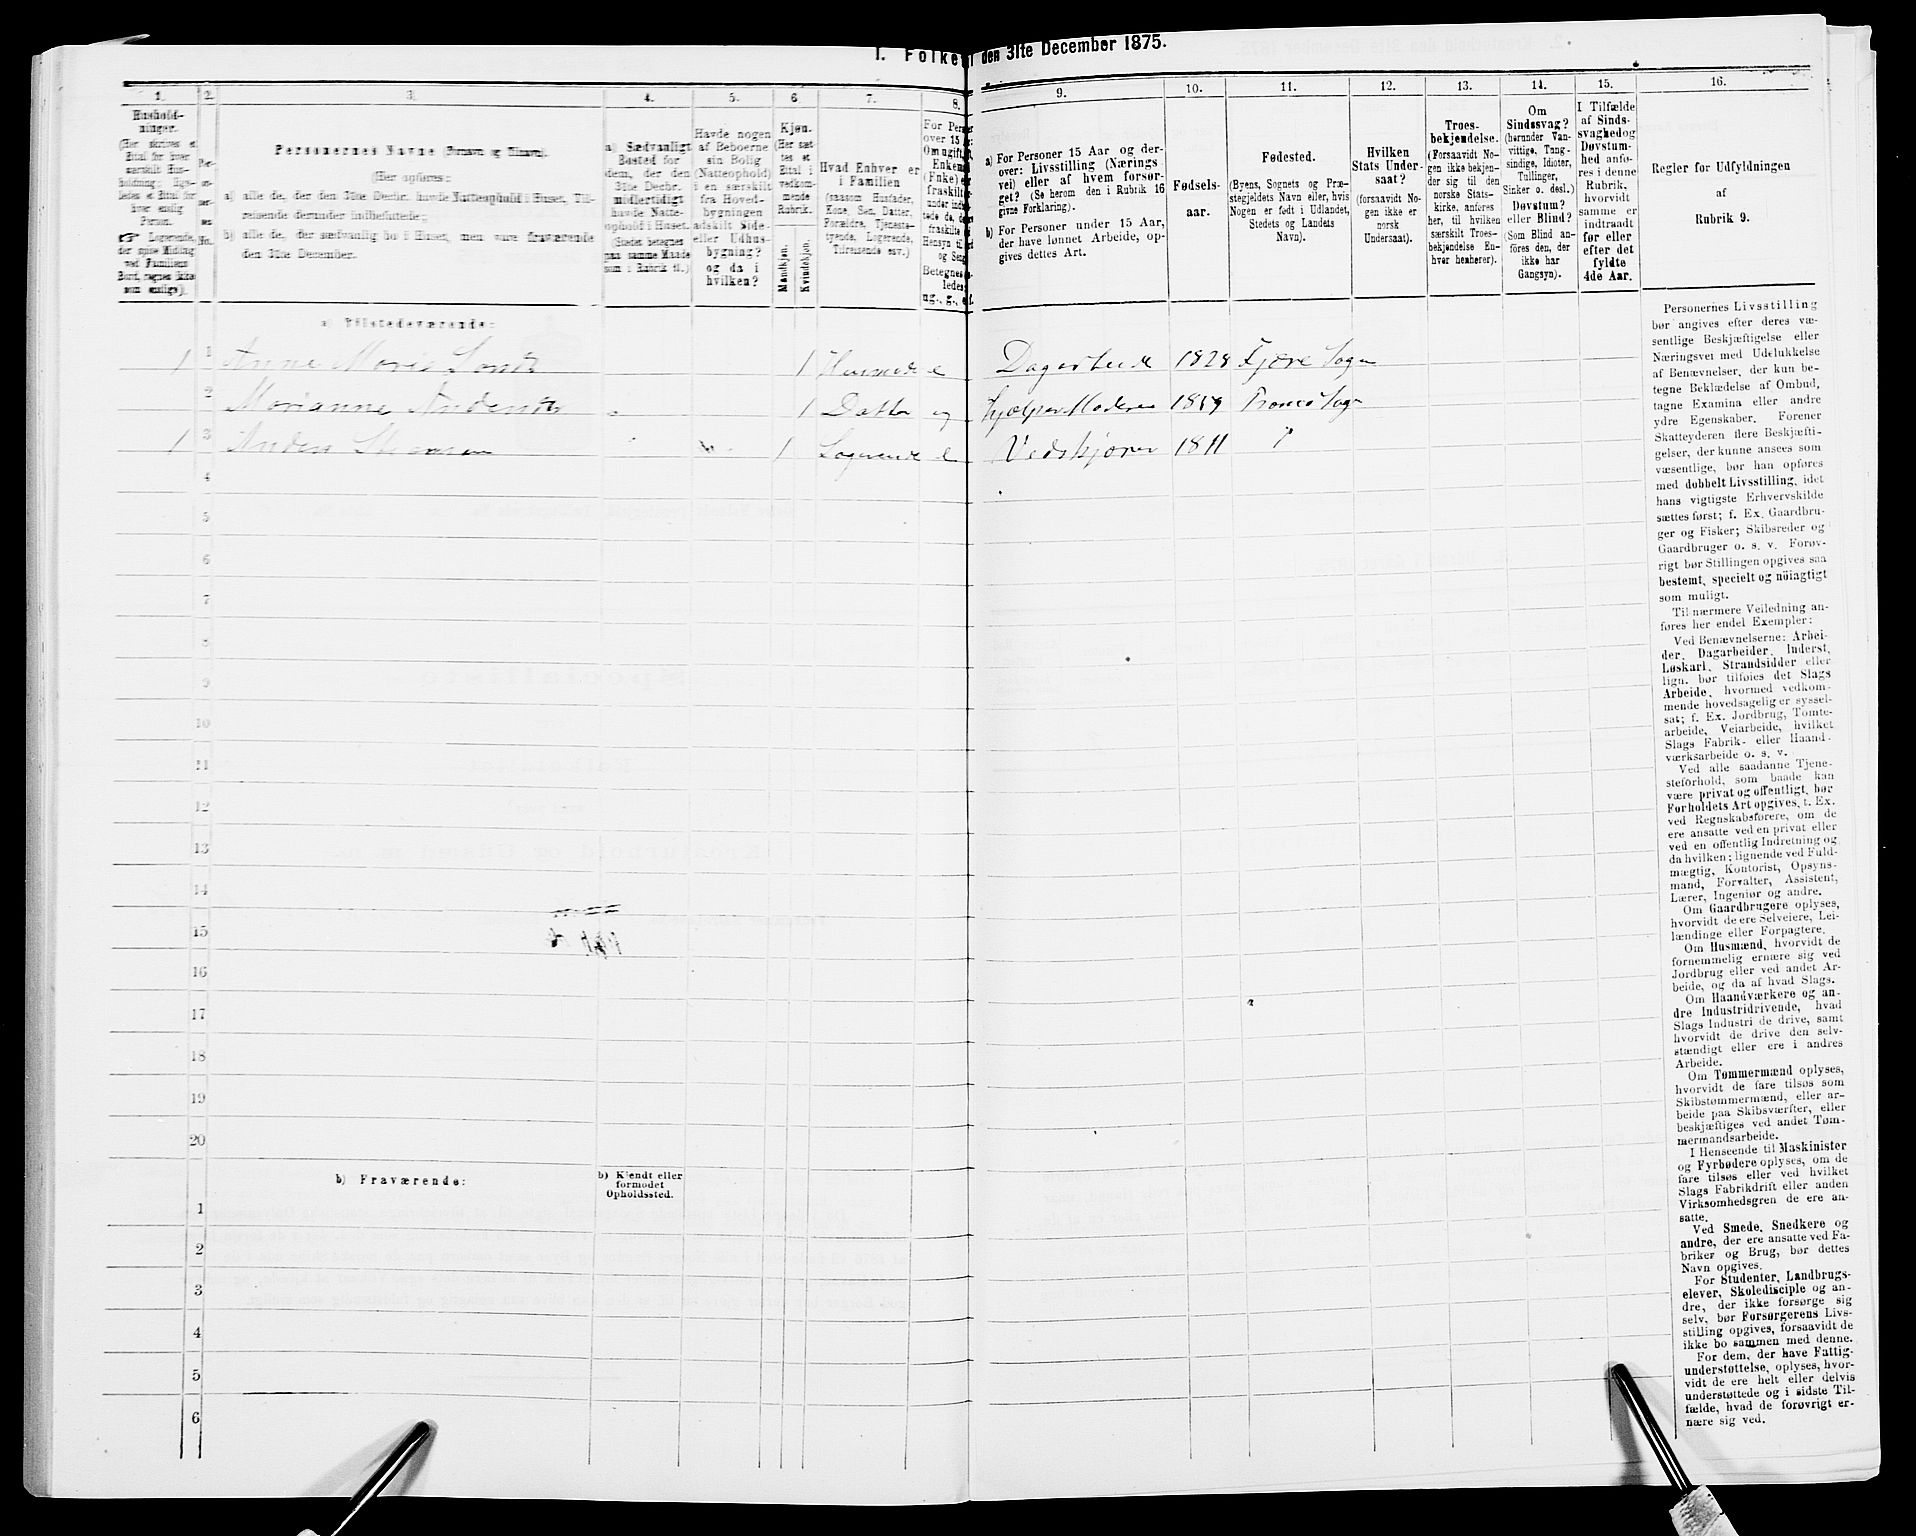 1. Folket
l den 31te December 1875.
1.
2.
3.
4.
5.
6
7.
8.
9.
10.
11.
12.
13.
14.
15.
16.
Hushold-
ninger.
(Her skrives et
Ettal for hver
særskilt Hus-
holdning; lige-
ledes et Ettal for
hver enslig
Person.
☞ Logerende,
der spise Middag
ved Familiens
Bord, regnes ikke
som enslige).
Per-
so-
ner-
nes
No.
Personernes Navne (Fornavn og Tilnavn).
(Her opføres:
a) alle de, der den 31te Decbr. havde Natteophold i Huset, Til-
reisende derunder indbefattede;
b) alle de, der sædvanlig bo i Huset, men vare fraværende
den 31te December.
a) Sædvanligt
Bosted for
dem, der den
31te Decbr.
midlertidigt
havde Natte-
ophold i Huset.
(Stedet betegnes
paa samme Maade
som i Rubrik 11.)
Havde nogen
af Beboerne
sin Bolig
(Natteophold)
i en særskilt
fra Hoved-
bygningen
adskilt Side-
eller Udhus-
bygning?
og da i
hvilken?
Kjøn.
(Her sæt-
tes et
Ettal i
vedkom-
mende
Rubrik.
Mandkjøn.
Kvindekjøn.
Hvad Enhver er
i Familien
(saasom Husfader,
Kone, Søn, Datter,
Forældre, Tjeneste-
tyende, Logerende,
Tilreisende osv.)
For Perso
over 15
Om ugift,
Enkem
(Fnke) e
fraskilt
under indb
tede de, de
fraskilte
Hensyn til
og Seng
Betegnes
ledes:
ug., g., e. f.
a) For Personer 15 Aar og der-
over: Livsstilling (Nærings-
vei) eller af hvem forsør-
get? (Se herom den i Rubrik 16
givne Forklaring).
b) For Personer under 15 Aar,
der have lønnet Arbeide, op-
gives dettes Art.
Fødsels-
aar.
Fødested.
(Byens, Sognets og Præ-
stegjeldets Navn eller, hvis
Nogen er født i Udlandet,
Stedets og Landets
Navn).
Hvilken
Stats Under-
saat?
(forsaavidt No-
gen ikke er
norsk
Undersaat).
Troes-
bekjendelse.
(Forsaavidt No-
gen ikke bekjen-
der sig til den
norske Stats-
kirke, anføres
her, til hvilken
særskilt Troes-
bekjendelse En-
hver henhører).
Om
Sindssvag?
(herunder Van-
vittige, Tung-
sindige, Idioter,
Tullinger,
Sinker o. desl.)
Døvstum?
eller Blind?
(Som Blind an-
føres den, der
ikke har
Gangsyn).
I Tilfælde
af Sinds-
svaghed og
Døvstum-
hed anfø-
res i denne
Rubrik,
hvorvidt
samme er
indtraadt
før eller
efter det
fyldte
4de Aar.
Regler for Udfyldningen
af
Rubrik 9.
a) Tilstedeværende:
1 1 Anne Marie 1 e Dagarbeide 1828 Fjære Sogn
2 Marianne 1 Datter ug hjælper Moderen 1859 Tromø Sogn
1 3 Anders 1 Logerende e 1811 "
4
5
6
7
8
9
10
11
12
13
14
15
16
17
18
19
20
b) Fraværende:
b) Kjendt eller
formodet
Opholdssted.
1
2
3
4
5
6
Personernes Livsstilling
bør angives efter deres væ-
sentlige Beskjæftigelse eller
Næringsvei med Udelukkelse
af Benævnelser, der kun be-
tegne Beklædelse af Ombud,
tagne Examina eller andre
ydre Egenskaber. Forener
Skatteyderen flere Beskjæfti-
gelser, der kunne ansees som
væsentlige, bør han opføres
med dobbelt Livsstilling, idet
hans vigtigste Erhvervskilde
sættes først; f. Ex. Gaardbru-
ger og Fisker; Skibsreder og
Gaardbruger o. s. v. Forøv-
rigt bør Stillingen opgives saa
bestemt, specielt og nöiagtigt
som muligt.
Til nærmere Veiledning an-
føres her endel Exempler:
Ved Benævnelserne: Arbei-
der, Dagarbeider, Inderst,
Løskarl, Strandsidder eller
lign. bør tilføies det Slags
Arbeide, hvormed vedkom-
mende hovedsagelig er syssel-
sat; f. Ex. Jordbrug, Tomte-
arbeide, Veiarbeide, hvilket
Slags Fabrik- eller Haand-
værksarbeide o. s. v.
Ved alle saadanne Tjene-
steforhold, som baade kan
være privat og offentligt, bør
Forholdets Art opgives, t. Ex.
ved Regnskabsførere, om de
ere ansatte ved en privat eller
ved en offentlig Indretning og
da hvilken; lignende ved Fuld-
mægtig, Kontorist, Opsyns-
mand, Forvalter, Assistent,
Lærer, Ingeniør og andre.
Om Gaardbrugere oplyses,
hvorvidt de ere Selveiere, Lei-
lændinge eller Forpagtere.
Om Husmænd, hvorvidt de
fornemmelig ernære sig ved
Jordbrug eller ved andet Ar-
beide, og da af hvad Slags.
Om Haandværkere og an-
dre Industridrivende, hvad
Slags Industri de drive, samt
hvorvidt de drive den selv-
stændigt eller ere i andres
Arbeide.
Om Tømmermænd oplyses,
hvorvidt de fare tilsøs som
Skibstømmermænd, eller ar-
beide paa Skibsværfter, eller
beskjæftiges ved andet Tøm-
mermandsarbeide.
I Henseende til Maskinister
og Fyrbødere oplyses, om de
fare tilsøs eller ved hvilket
Slags Fabrikdrift eller anden
Virksomhedsgren de ere an-
satte.
Ved Smede, Snedkere og
andre, der ere ansatte ved Fa-
briker og Brug, bør dettes
Navn opgives.
For Studenter, Landbrugs-
elever, Skoledisciple og an-
dre, der ikke forsørge sig
selv, bør Forsørgerens Livs-
stilling opgives, forsaavidt de
ikke bo sammen med denne.
For dem, der have Fattig-
understøttelse, oplyses, hvor-
vidt de ere helt eller delvis
understøttede og i sidste Til-
fælde, hvad de forøvrigt er-
nære sig ved.